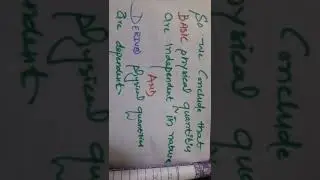 So we conclude that
BASIC physical quantities
are independent in nature
AND
DERIVED physical quantities
are dependent